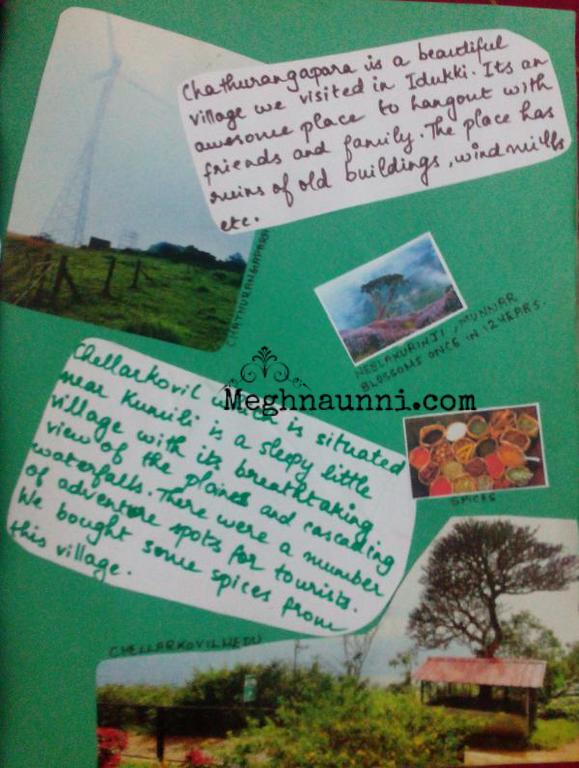 Chathurangapara is a beautiful
village we visited in Idukki. Its an
awesome place to hangout with
friends and family. The place has
ruins of old buildings, wind mills
etc.
CHATHURANGAPARA
NEELAKURINJI, MUNNAR
BLOSSOMS ONCE IN 12 YEARS.
Meghnaunni.com
Chellarkovil which is situated
near Kumili is a sleepy little
village with its breathtaking
view of the plaines and cascading
waterfalls. There were a number
of adventure spots for tourists.
We bought some spices from
this village.
SPICES
CHELLARKOVILMEDU